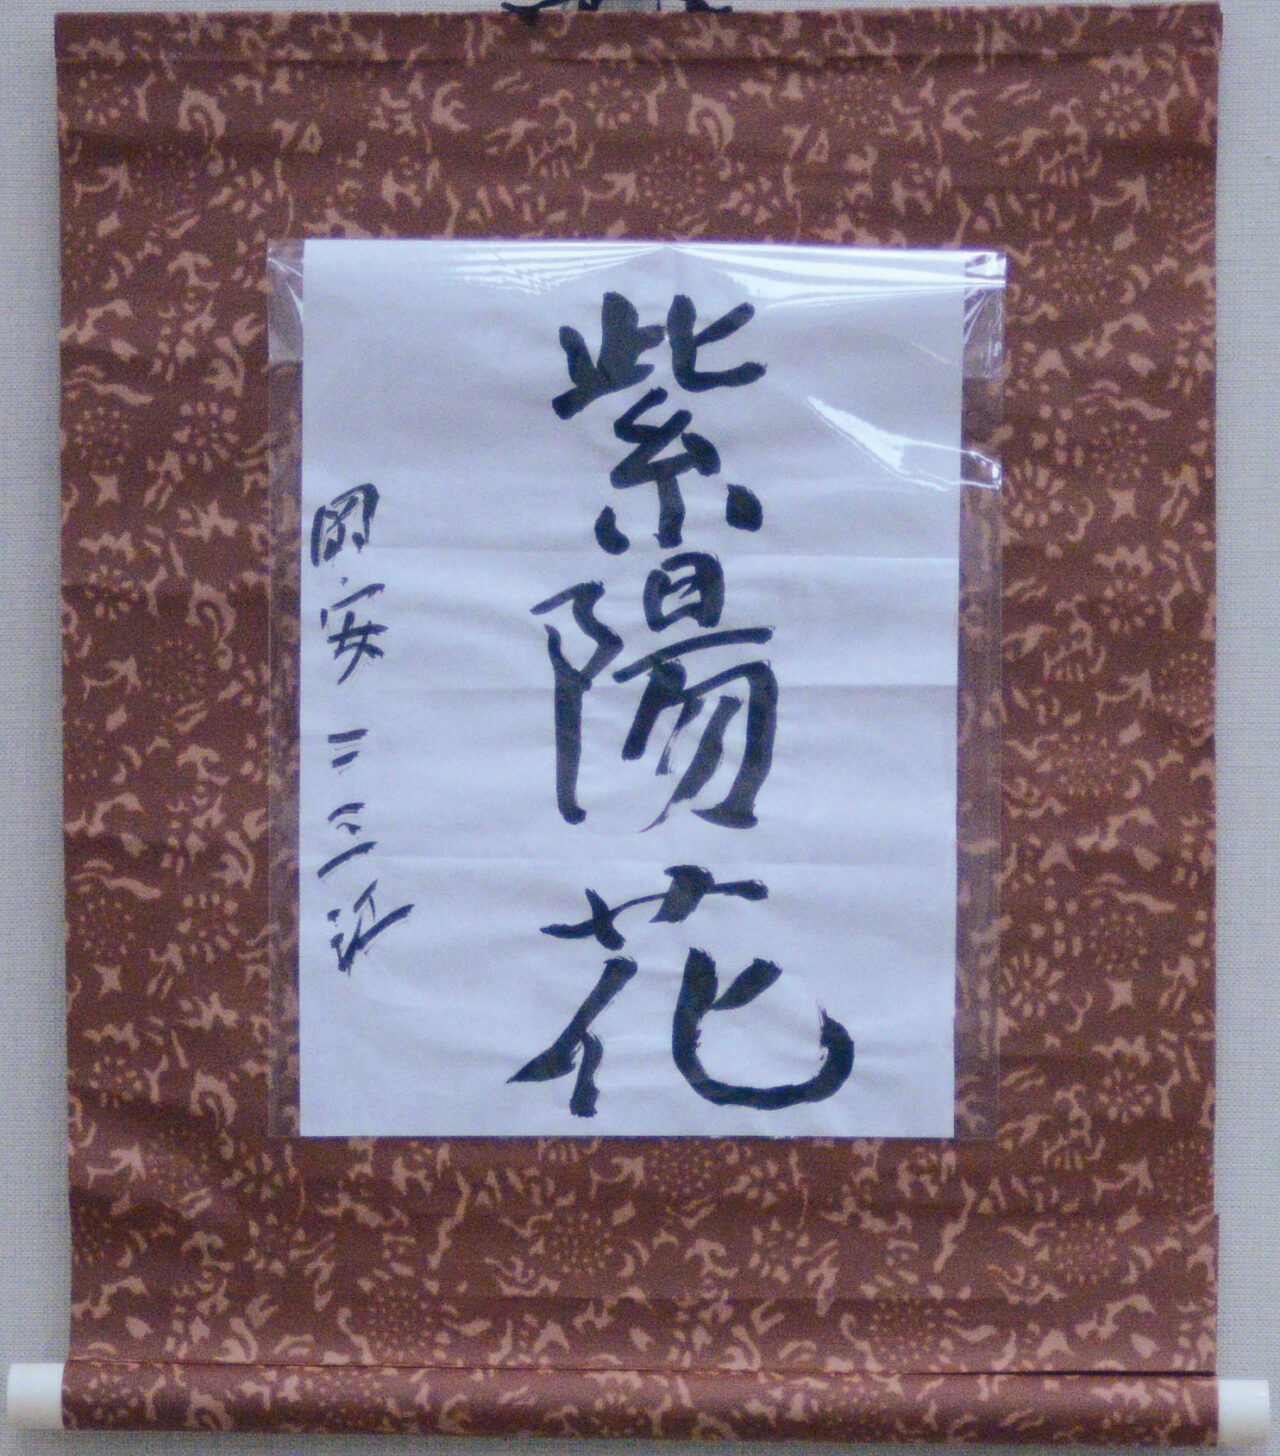 紫陽花
岡安三三江